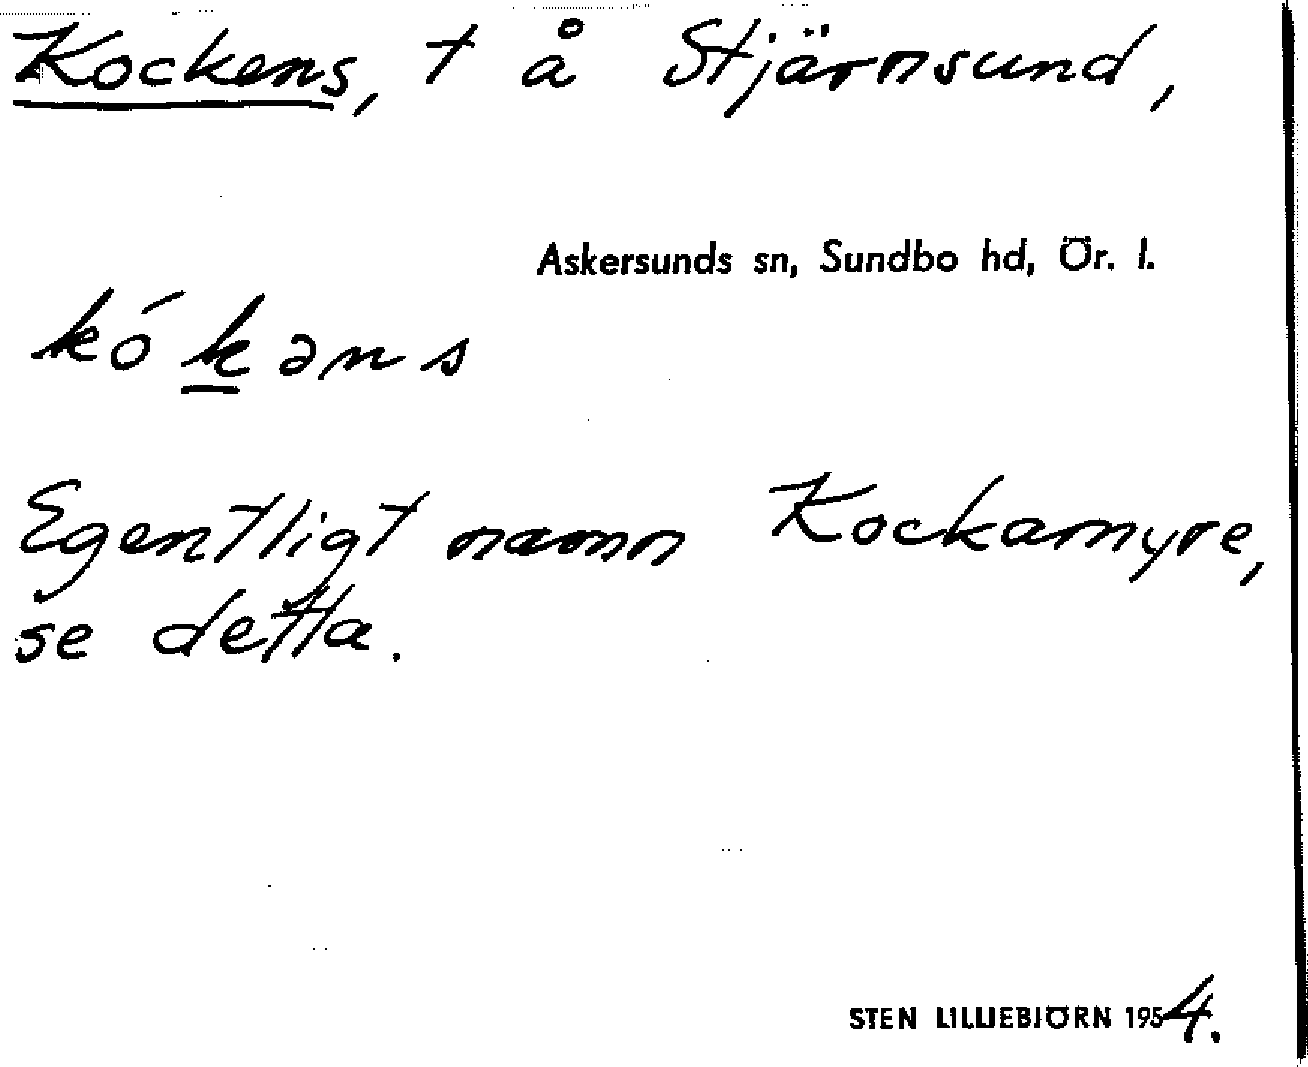 Kockens, t å Stjärnsund,
Askersunds sn, Sundbo hd, Ör. l.
kókəns
Egentligt namn Kockamyre,
se detta.
STEN LILLIEBJÖRN 1954.